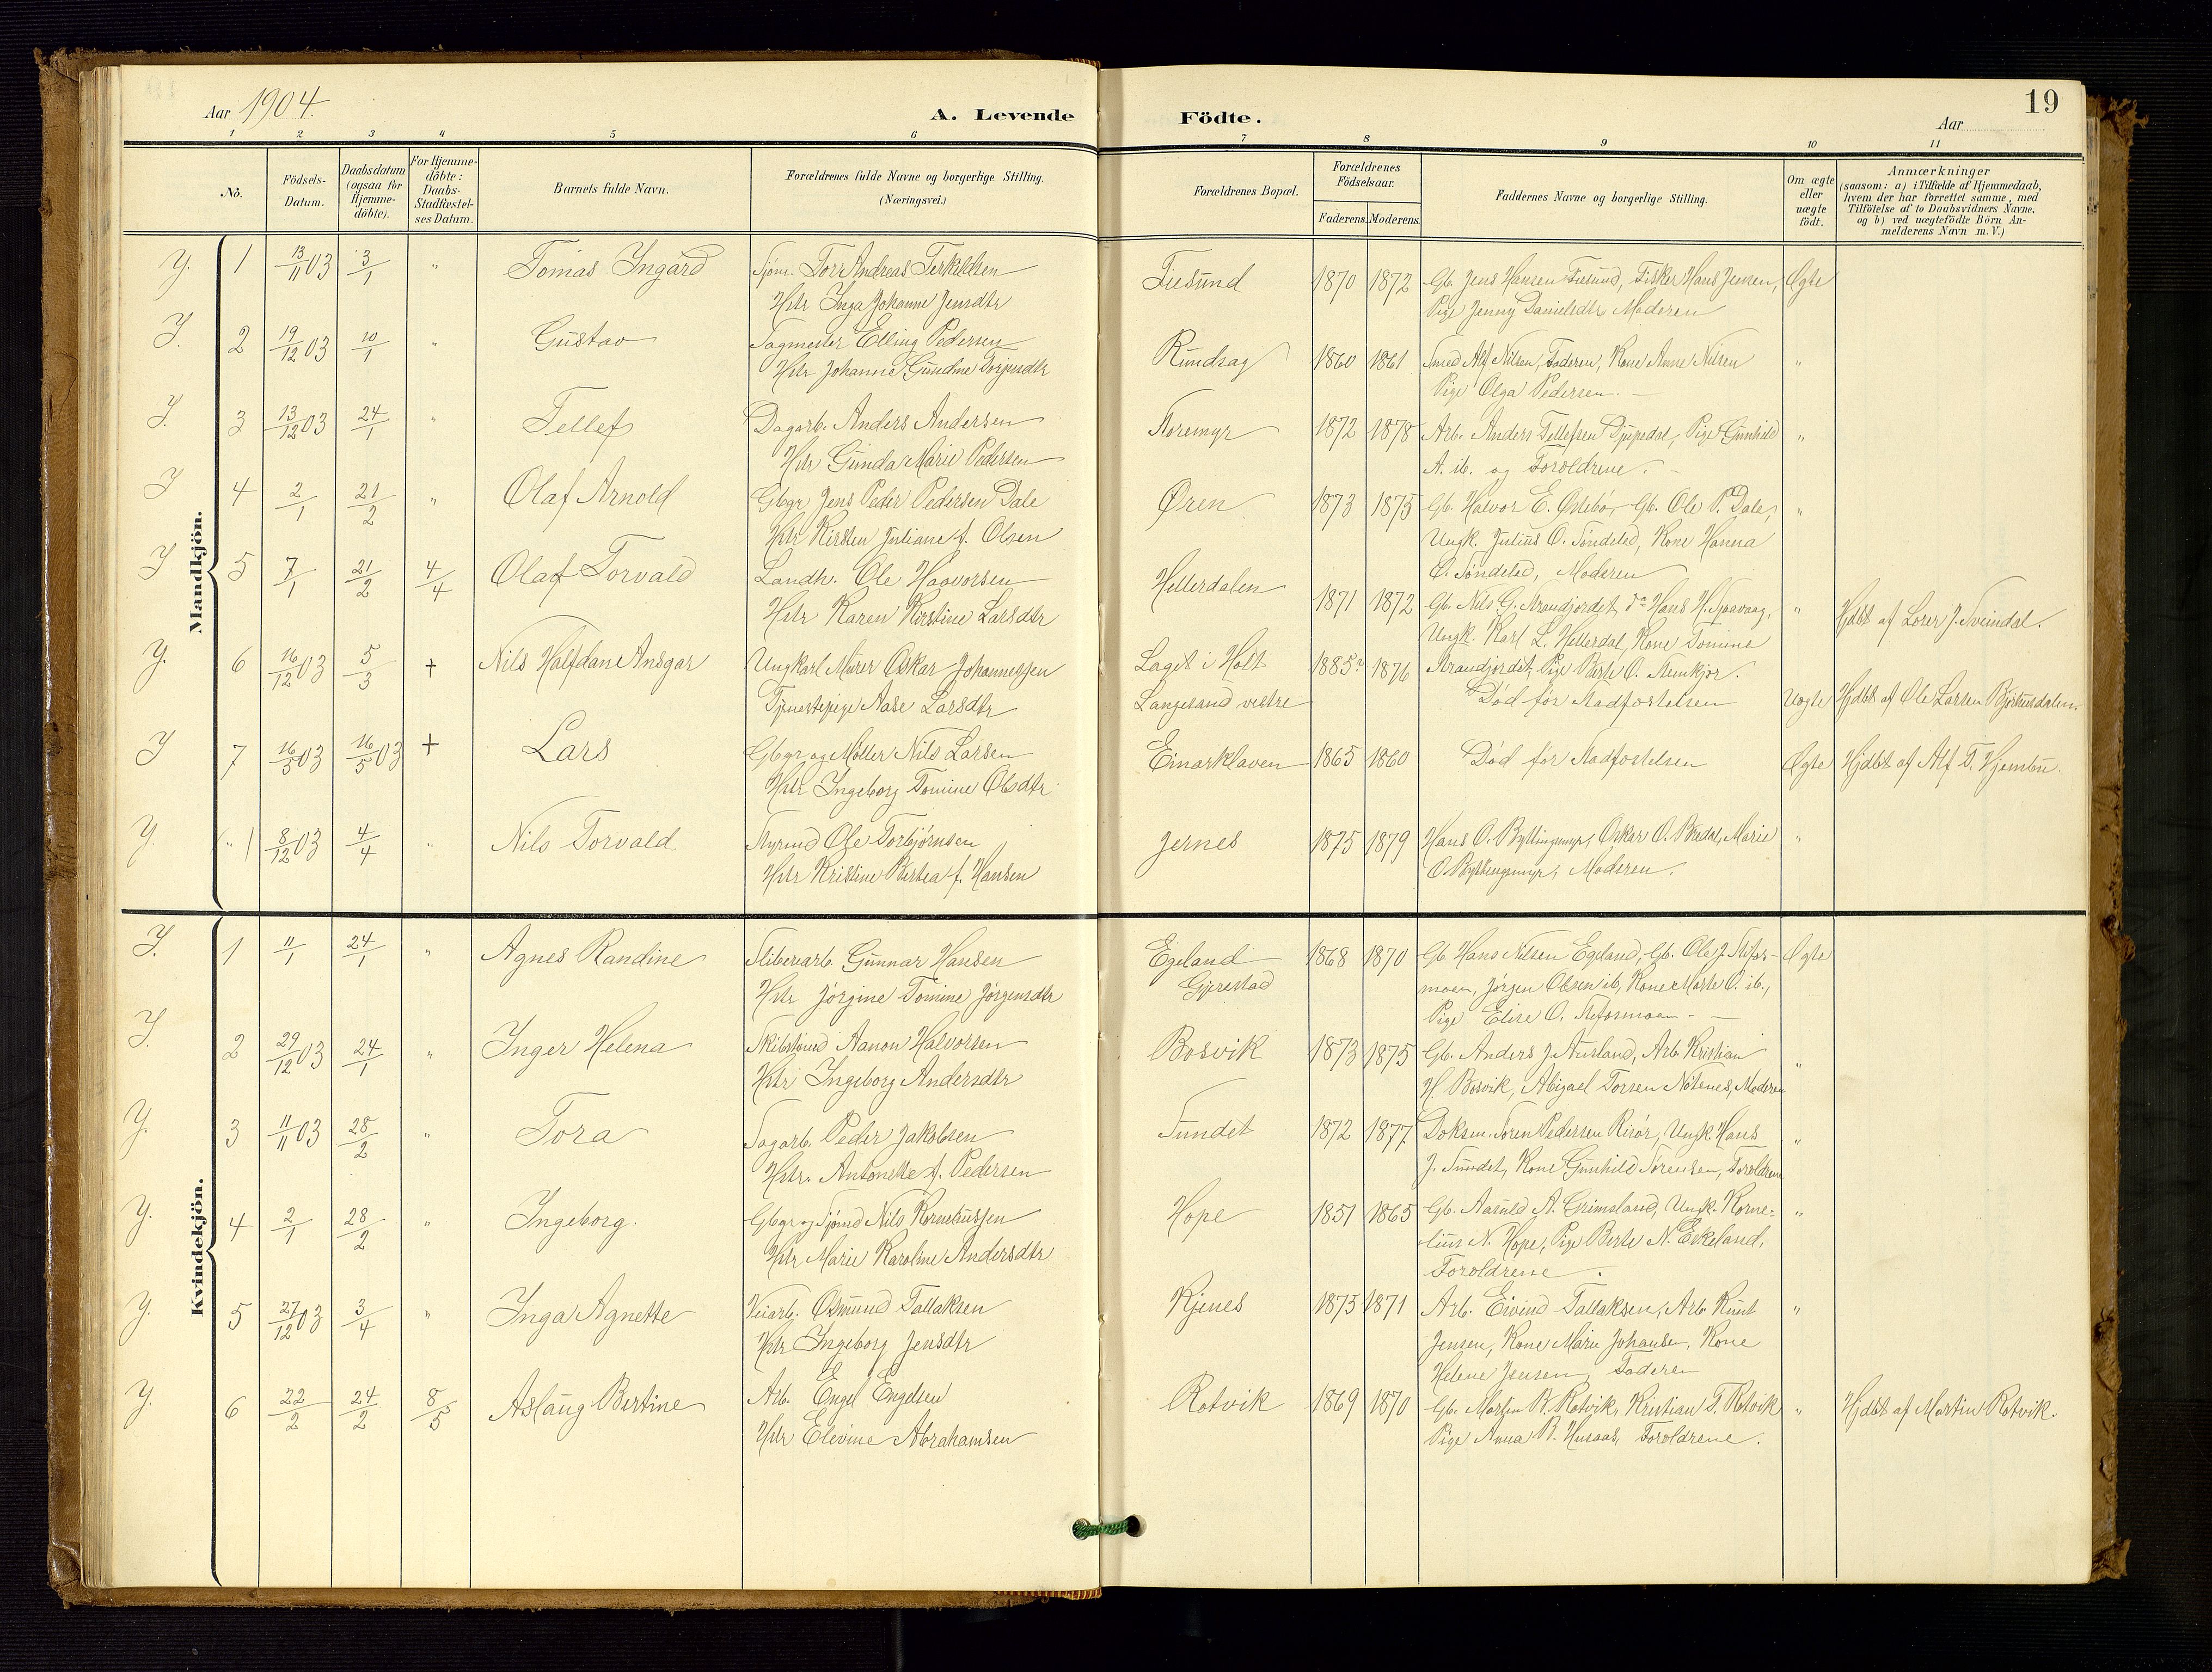 Aar 1904.
A. Levende Födte.
Aar
19
1 2 3 4 5 6 7 8 9 10 11
No.
Födsels-Datum.
Daabsdatum (ogsaa for Hjemme-döbte).
For Hjemme-döbte: Daabs-Stadfæstel-ses Datum.
Barnets fulde Navn.
Forældrenes fulde Navne og borgerlige Stilling. (Næringsvei.)
Forældrenes Bopæl.
Forældrenes Födselsaar.
Faderens. Moderens.
Faddernes Navne og borgerlige Stilling.
Om ægte eller uægte födt.
Anmærkninger (saasom: a) i Tilfælde af Hjemmedaab, hvem der har forrettet samme, med Tilföielse af to Daabsvidners Navne, og b) ved uægtefödte Börn An-melderens Navn m. V.)
Mandkjön.
Y. 1 13/11 03 3/1 " Tomas Ingard Sjöm. Tor Andreas Terkildsen Fiesund 1870 1872 Gb. Jens Hansen Fiesund, Fisker Hans Jensen, Ægte
Hstr Inga Johanne Jensdtr Pige Jenny Danielsdtr, Moderen
Y. 2 19/12 03 10/1 " Gustav Sagmester Elling Pedersen Rundsag 1860 1861 Smed Alf Nilsen, Faderen, Kone Anne Nilsen "
Hstr Johanne Gusdine Torjusdtr Pige Olga Pedersen.
Y. 3 13/12 03 24/1 " Tellef Dagarb. Anders Andersen Storemyr 1872 1878 Arb. Anders Tellefsen Djupedal, Pige Gunhild "
Hstr Gunda Marie Pedersen A. ib. og Foroldrene.
Y 4 2/1 21/2 " Olaf Arnold Gbgr Jens Peder Pedersen Dale Øren 1873 1875 Gb. Halvor E. Østebö, Gb. Ole P. Dale, "
Hstr Kirsten Juliane f. Olsen Ungk. Julius O. Söndeled, Kone Hanna
O. Söndeled, Moderen
Y 5 7/1 21/2 4/4 Olaf Torvald Landh. Ole Haavorsen Hellerdalen 1871 1872 Gb. Nils G. Strandjordet, do Hans H. Sjaavaag, " Hjdbt af Lærer J. Svindal.
Hstr Karen Kirstine Larsdtr Ungk. Karl L. Hellerdal, Kone Tomine
Strandjordet, Pige Berte O. Stemkjær.
Y. 6 16/12 03 5/3 + Nils Halfdan Ansgar Ungkarl Murer Oskar Johannessen Laget i Holt 1885? 1876
Tjenestepige Aase Larsdtr Langesand vestre Död för Stadfæstelsen Uægte Hjdbt af Ole Larsen Björhusdalen.
Y 7 16/5 03 16/5 03 + Lars Gbgr og Möller Nils Larsen Einarkleven 1865 1860 Död för Stadfæstelsen Ægte Hjdbt af Alf T. Hjembu.
Hstr Ingeborg Tomine Olsdtr
Y. (") 8/12 03 4/4 " Nils Torvald Styrmd Ole Torbjörnsen Jernes 1875 1879 Hans O. Byttingsmyr, Oskar O. Bredal, Marie "
Hstr Kristine Bertea f. Hansen O. Byttingsmyr, Moderen.
Kvindekjön.
Y. 1 11/1 24/1 " Agnes Randine Sliberiarb. Gunnar Hansen Egeland 1868 1870 Gb. Hans Nilsen Egeland, Gb. Ole J. Stifos- Ægte
Hstr Jörgine Tomine Jörgensdtr Gjerestad moen, Jörgen Olsen ib, Kone Marte O. ib.,
Pige Elise O. Stifosmoen
Y. 2 29/12 03 24/1 " Inger Helena Skibstömd Aanon Halvorsen Bosvik 1873 1875 Gb. Anders J. Ausland, Arb. Kristian "
Hstr Ingeborg Andersdtr H. Bosvik, Abigael Torsen Nötenes, Moderen
Y. 3 11/11 03 28/2 " Tora Sagarb. Peder Jakobsen Sundet 1872 1877 Doksm. Sören Pedersen Risör, Ungk. Hans "
Hstr. Antonette f. Pedersen J. Sundet, Kone Gunhild Sörensen, Foroldrene
Y. 4 2/1 28/2 " Ingeborg. Gbgr og Sjömd Nils Korneliussen Hope 1851 1865 Gb. Aasuld A. Grimsland, Ungk. Korne= "
Hstr Marie Karoline Andersdtr lius N. Hope, Pige Berte N. Eikeland,
Foroldrene.
Y. 5 27/12 03 3/4 " Inga Agnette Veiarb. Osmund Tallaksen Kjenes 1875 1871 Arb. Eivind Tallaksen, Arb. Knut "
Hstr Ingeborg Jensdtr Jensen, Kone Marie Johansen, Kone
Helene Jensen, Faderen
Y. 6 22/2 24/2 8/5 Aslaug Bertine Arb. Engel Engelsen Rotvik 1869 1870 Gb. Morten B. Rotvik, Kristian T. Rotvik " Hjdbt af Martin Rotvik.
Hstr Elevine Abrahamsen Pige Anna B. Husaas, Foroldrene.